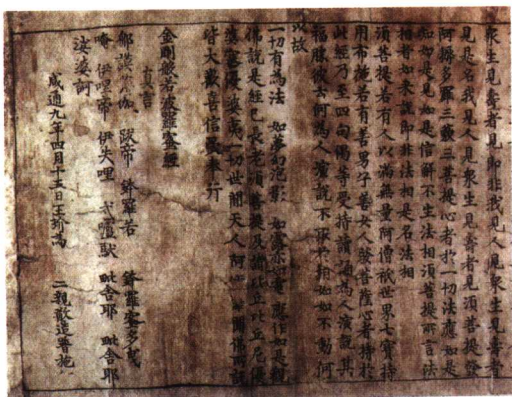 衆生見壽者見即非我見人見衆生見壽者
見是名我見人見衆生見壽者見須菩提發
阿耨多羅三藐三菩提心者於一切法應如是
知如是見如是信解不生法相須菩提所言法
相者如來說即非法相是名法相
須菩提若有人以滿無量阿僧祇世界七寶持
用布施若有善男子善女人發菩薩心者持於
此經乃至四句偈等受持讀誦為人演說其
福勝彼云何為人演說不取於相如如不動何
以故
一切有為法 如夢幻泡影 如露亦如電 應作如是觀
佛說是經已長老須菩提及諸比丘比丘尼優
婆塞優婆夷一切世間天人阿修羅聞佛所說
皆大歡喜信受奉行
金剛般若波羅蜜經
真言
那謨婆伽 跋帝 鉢羅若 鉢羅蜜多曳
唵 伊哩帝 伊失哩 戍嚧馱 毗舍耶 毗舍耶
婆婆訶
咸通九年四月十五日王玠為 二親敬造普施